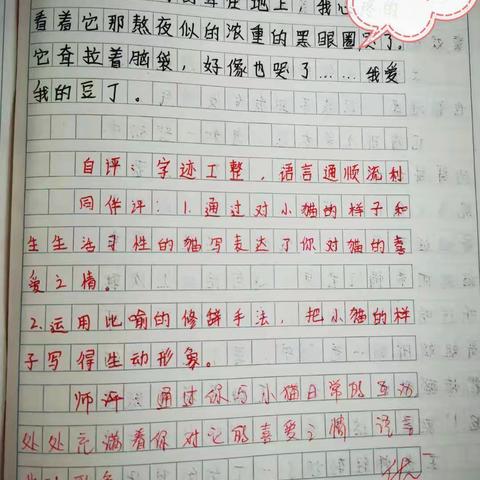 地上，我心疼的
看着它那熬夜似的浓重的黑眼圈哭了。
它耷拉着脑袋，好像也哭了……我爱
我的豆丁。
自评：字迹工整，语言通顺流利
同伴评：1.通过对小猫的样子和
生活习性的描写表达了你对猫的喜
爱之情。
2.运用比喻的修辞手法，把小猫的样
子写得生动形象。
师评：通过你与小猫日常的互动
处处充满着你对它的喜爱之情，语言
优